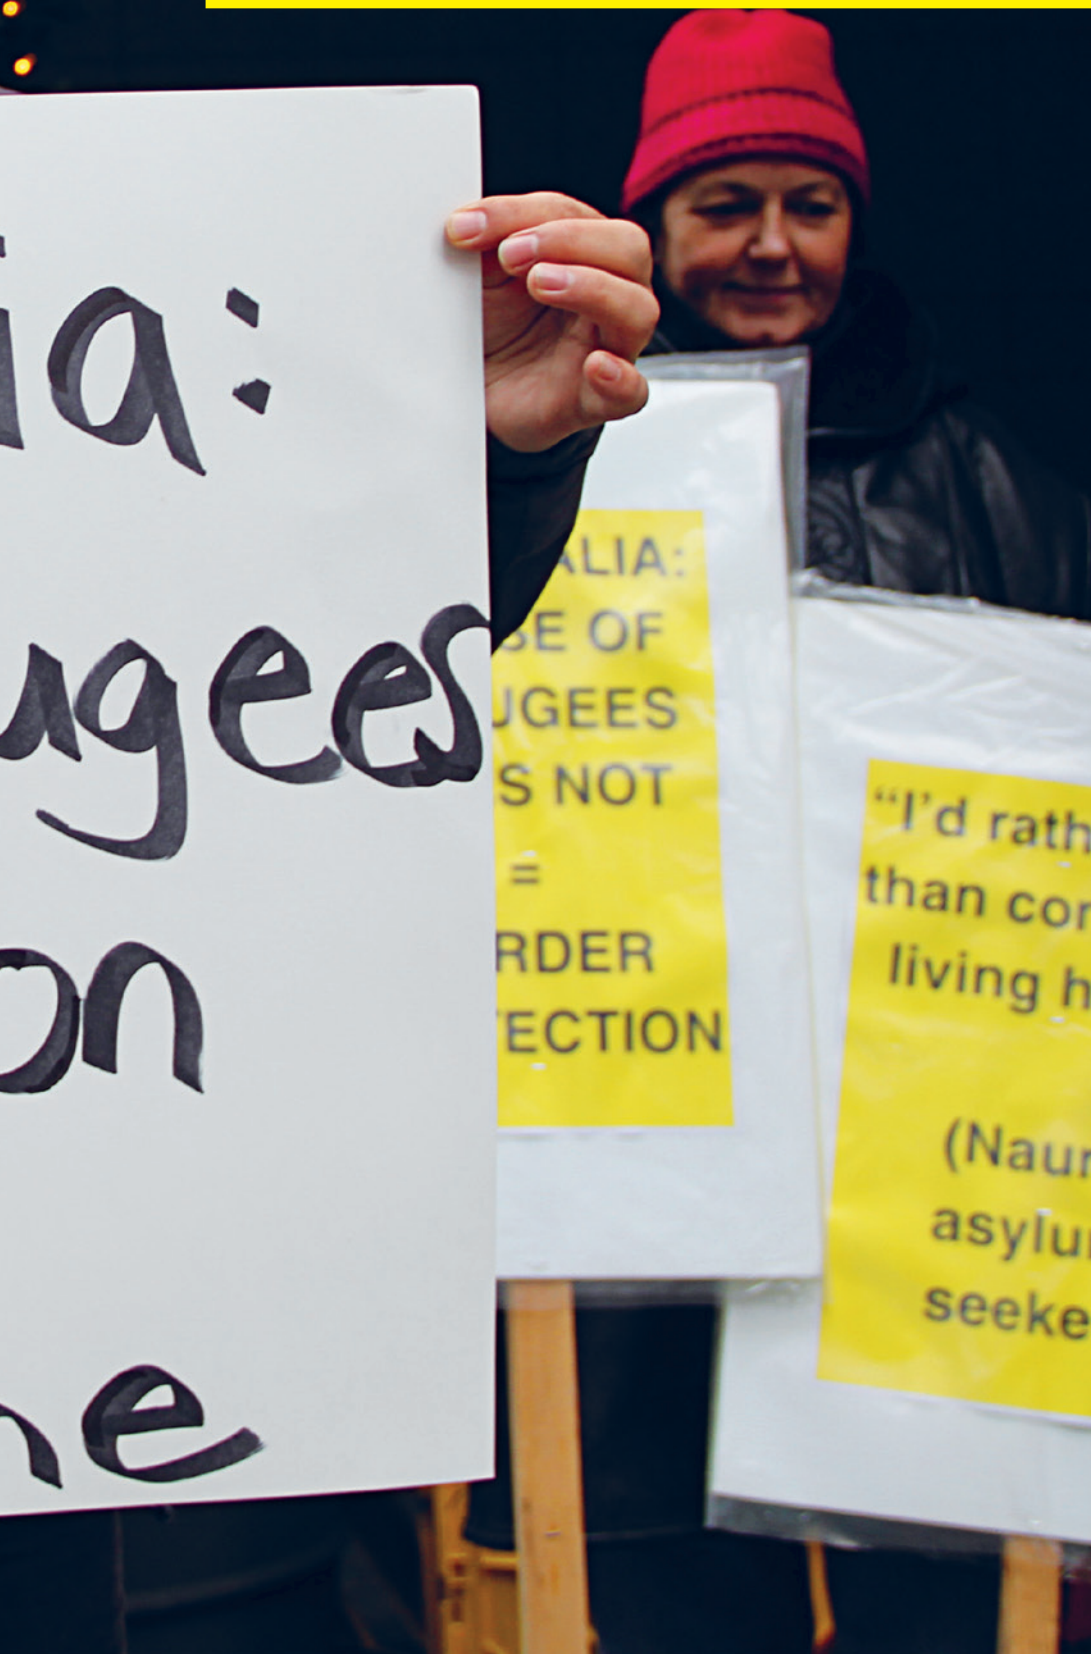 ia:
ugees
on
ne
ALIA:
SE OF
UGEES
S NOT
=
RDER
TECTION
“I’d rath
than con
living h
(Naur
asylu
seeke